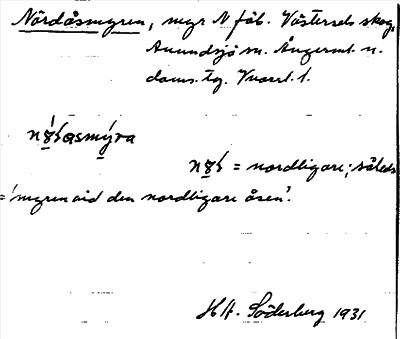 Nördåsmyren, myr N fäb. Västersels skog,
Anundsjö sn. Ångerml. n.
doms. tg. Kvarnt. 1.
smýra
= nordligare; således
= 'myren vid den nordligare åsen'.
H A. Söderberg 1931